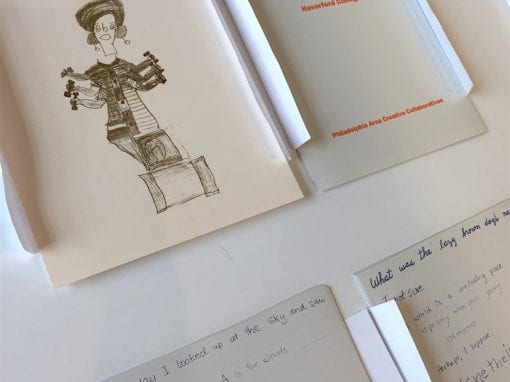 Haverford Colleg
Philadelphia Area Creative Collaboratives
What was the lazy brown dog's
not sure
world is a confusing place
especially when you're young
Perhaps, I suppose,
day I looked up at the sky and saw
A in the clouds